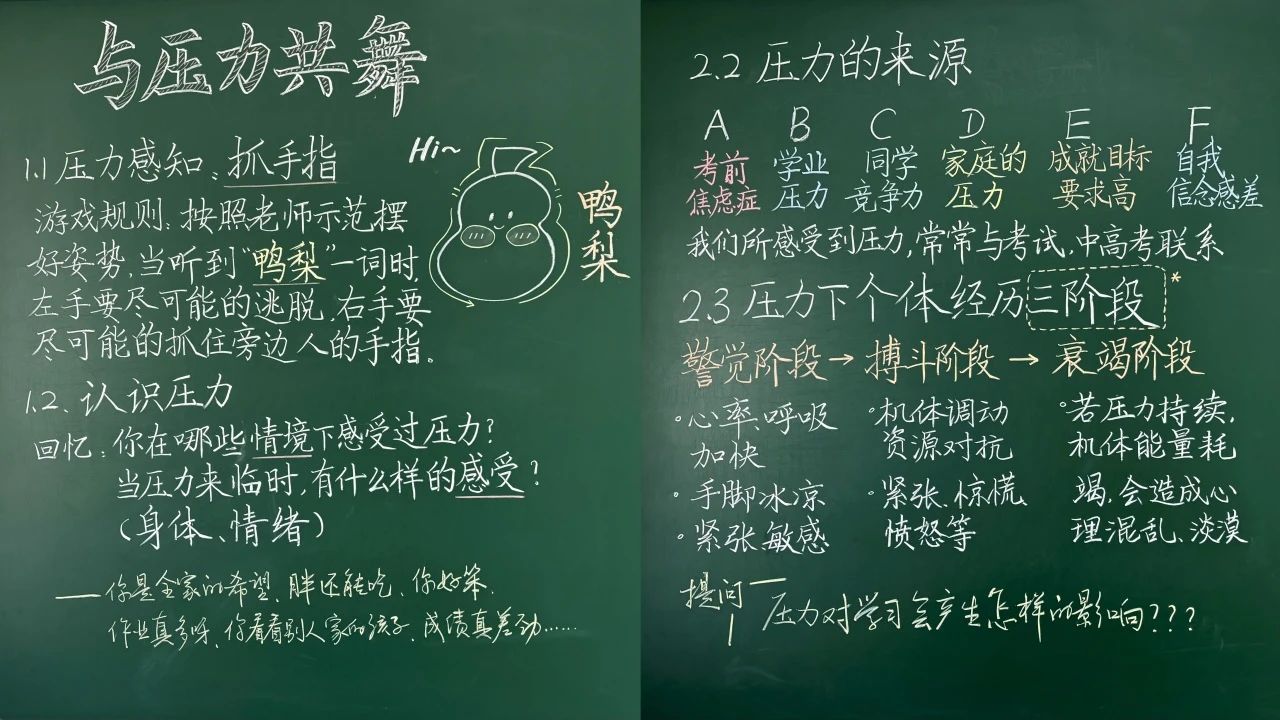 与压力共舞
1.1 压力感知:抓手指
Hi~
鸭梨
游戏规则:按照老师示范摆
好姿势,当听到“鸭梨”一词时,
左手要尽可能的逃脱,右手要
尽可能的抓住旁边人的手指。
1.2、认识压力
回忆:你在哪些情境下感受过压力?
当压力来临时,有什么样的感受?
(身体、情绪)
——你是全家的希望、胖还能吃、你好笨、
作业真多呀、你看看别人家的孩子、成绩真差劲……
2.2 压力的来源
A B C D E F
考前 学业 同学 家庭的 成就目标 自我
焦虑症 压力 竞争力 压力 要求高 信念感差
我们所感受到压力,常常与考试,中高考联系
2.3 压力下个体经历三阶段*
警觉阶段→搏斗阶段→衰竭阶段
·心率、呼吸
加快
·手脚冰凉
·紧张、敏感
·机体调动
资源对抗
·紧张、惊慌
愤怒等
·若压力持续,
机体能量耗
竭,会造成心
理混乱、淡漠
提问——
压力对学习会产生怎样的影响???